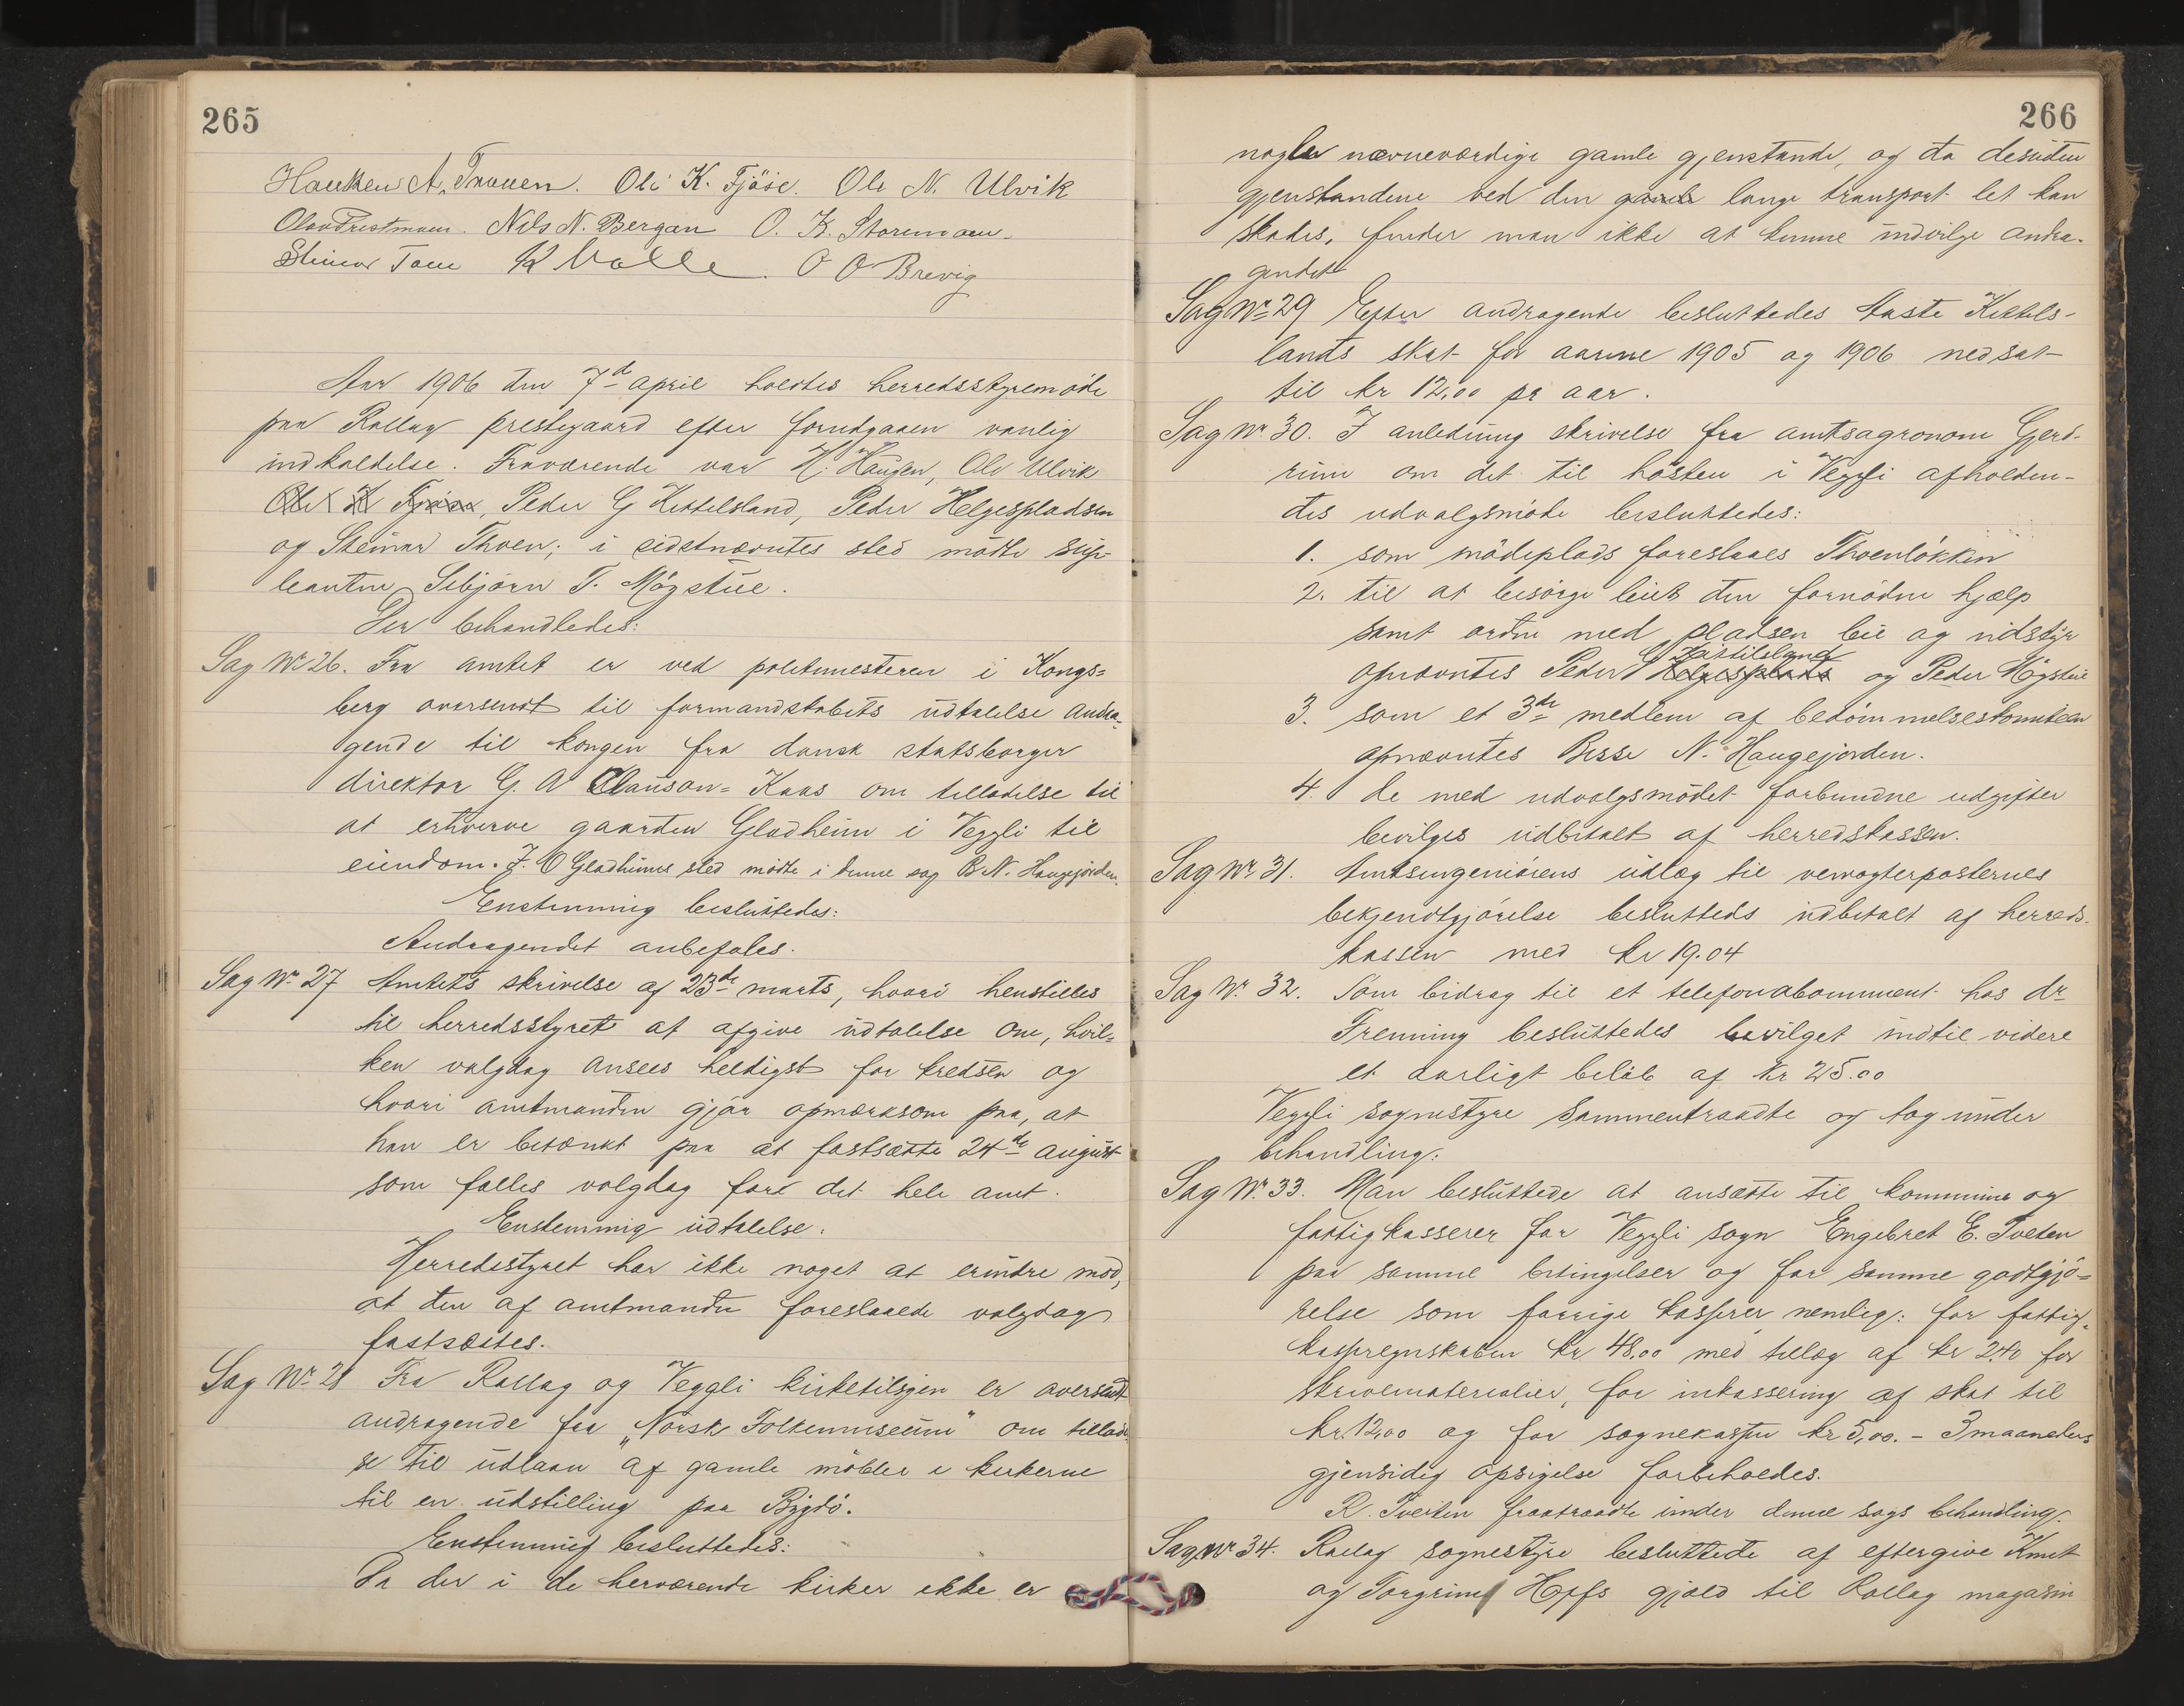 265
Haaken A. Traaen. Ole K. Fjöse. Ole N. Ulvik
Olav Prestmoen. Nils N. Bergan O. K. Storemoen
Steinar Toen K Valle. O O Brevig
Aar 1906 den 7de april holdtes herredsstyremöde
paa Rollag prestegaard efter forudgaaen vanlig
indkaldelse. Fraværende var H. Haugen, Ole Ulvik
Ole K Fjöse, Peder G Kettelsland, Peder Helgespladsen
og Steinar Thoen; i sidstnævntes sted mödte sup-
leanten Sebjörn T. Mögstue.
Der behandledes:
Sag Nr 26. Fra amtet er ved politimesteren i Kongs=
berg oversendt til formandskabets udtalelse andra-
gende til kongen fra dansk statsborger
direktör G. A Clauson=Kaas om tilladelse til
at erhverve gaarden Gladheim i Veggli til
eiendom. J. O Gladheims sted mödte i denne sag B. N. Haugejorden.
Enstemmig besluttedes:
Andragendet anbefales.
Sag Nr 27 Amtets skrivelse af 23de marts, hvori henstilles
til herredsstyret at afgive udtalelse om, hvil=
ken valgdag ansees heldigst for kredsen og
hvori amtmanden gjör opmerksom paa, at
han er betænkt paa at fastsætte 24de august
som fælles valgdag fore det hele amt.
Enstemmig udtalelse:
Herredsstyret har ikke noget at erindre mod,
at den af amtmanden foreslaaede valgdag
fastsættes.
Sag Nr 28 Fra Rollag og Veggli kirketilsyn er oversendt
andragende fra "Norsk Folkemuseum" om tilladel-
se til udlaan af gamle möbler i kirkerne
til en udstilling paa Bygdö.
Enstemmig besluttedes:
Da der i de herværende kirker ikke er
266
nogle nævneværdige gamle gjenstande, og da desuten
gjenstandene ved den gamle lange transport let kan
skades, finder man ikke at kunne indvilge andra-
gendet
Sag Nr 29 Efter andragende besluttedes Aaste Kettels-
lands skat for aarene 1905 og 1906 nedsat
til kr 12,00 pr aar.
Sag Nr 30. I anledning skrivelse fra amtsagronom Gjerd-
rum om det til hösten i Veggli afholden-
des udvalgsmöde besluttedes:
1. som mödeplads foreslaaes Thoenlökken
2. til at besörge leiet den fornödne hjælp
samt ordne med pladsen leie og udstyr
Kettilsland
opnævntes Peder Helgesplads og Peder Mögstue
3. som et 3die medlem af bedömmelseskomiteen
opnævntes Besse N. Haugejorden.
4. de med udvalgsmödet forbundne udgifter
bevilges udbetalt af herredskassen.
Sag Nr 31. Amtsingeniörens utlæg til vernogterposternes
bekjendtgjörelse besluttedes udbetalt af herreds-
kassen med kr 19.04
Sag Nr 32. Som bidrag til et telefonabonnement hos dr
Frenning besluttedes bevilget indtil videre
et aarligt belöb af kr 25.00
Veggli sognestyre sammentraadte og tog under
behandling:
Sag Nr 33. Man besluttede at ansætte til kommune og
fattigkasserer for Veggli sogn Engebret E. Tveten
paa samme betingelser og for samme godtgjö=
relse som forrige kasserer nemlig: for fattig-
kasseregnskaben kr 48,00 med tillæg af kr 2,40 for
skrivematerialier, for inkassering af skat til
kr. 12,00 og for sognekassen kr 5,00. - 3 maaneders
gjensidig opsigelse forbeholdes.
R. Tveiten fratraadte under denne sags behandling.
Sag Nr 34. Rollag sognestyre besluttede at eftergive Knut
og Torgrim Hoffs gjæld til Rollag magasin